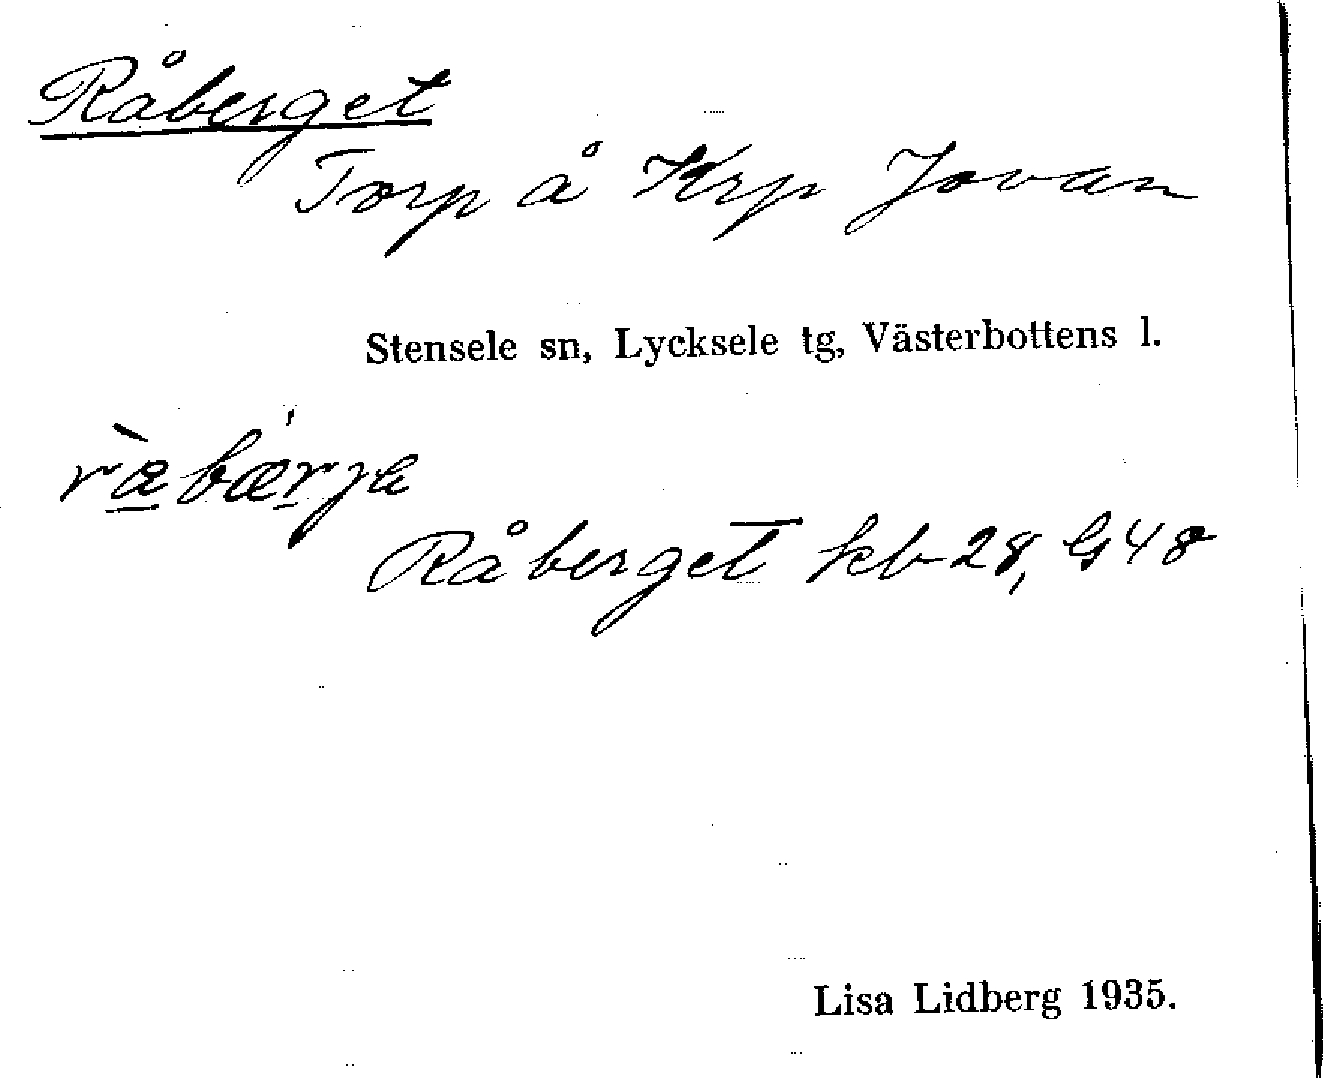 Råberget
Torp å Krp Jovan
Stensele sn, Lycksele tg, Västerbottens l.
Råberget kb 28, G48
Lisa Lidberg 1935.